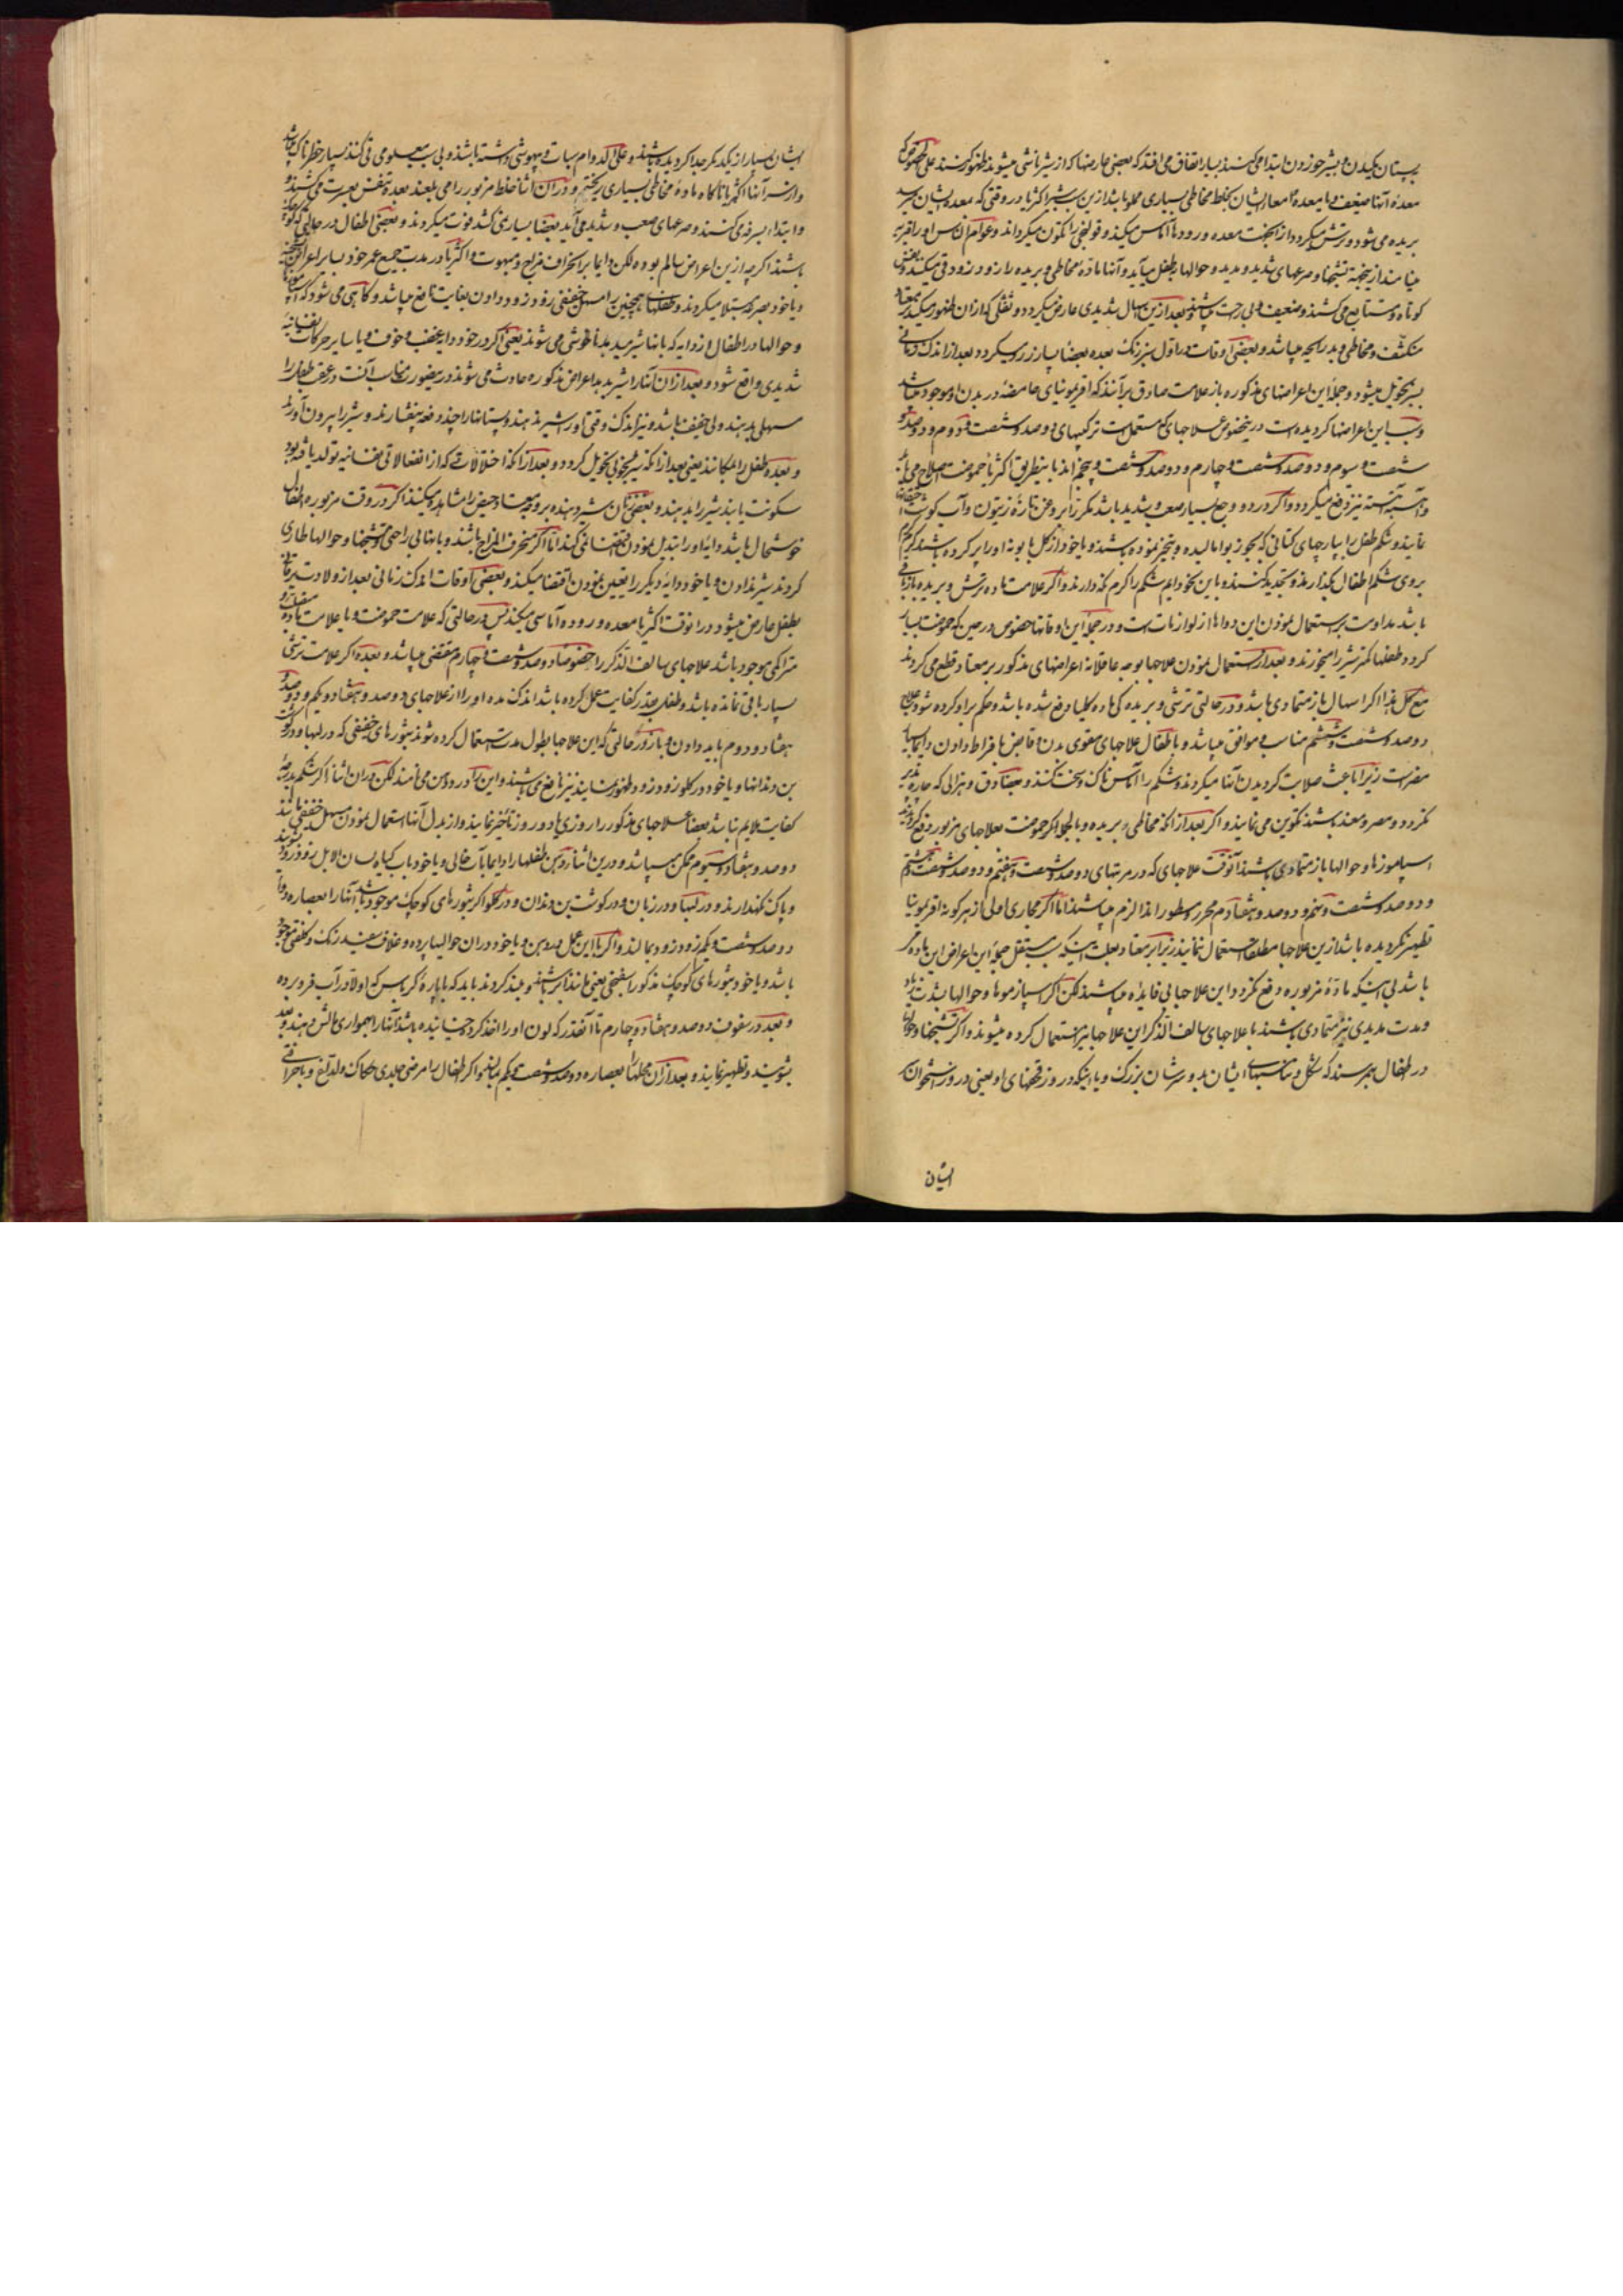 پستان مکیدن و شیر خوردن ابتدا می کنند بسیار اتفاق می افتد که بعضی عارضها که از شیر ناشی میشوند ظهور کنند علی الخصوص که
معدهٔ آنها ضعیف و یا معده و امعاء ایشان بخلط مخاطی بسیاری مملو باشد ازین سبب شیر اکثریا در وقتی که بمعده ایشان میرسد
بریده می شود و ترش میکردد از اینجهت معده و رودها آماس میکند و قولنجی را تکون میکرداند و عوام الناس او را قریه
می نامند ازینجهة تشنجها و صرعهای شدید و مدید و حوالها بطفل میآید و آنها مادهٔ مخاطی و بریده را زود زود قی میکنند و تنفس
کوتاه و متتابع می کشند و ضعیف و بی رحت میباشند و بعد ازین اسهال شدیدی عارض میکردد و ثقلی که ازان ظهور میکند بمقعد
منکشف و مخاطی و بد رایحه میباشد و بعضی اوقات در اول سبز رنک بعده بعضا پاره زرد میکردد و بعد از اندک زمانی
بسبز تحویل میشود و جملهٔ این اعراضهای مذکوره باز علامت صادق برآنند که اقریمونیای حامضه در بدن او موجود میباشد
و سبب این اعراضها کردیده است درینخصوص علاجهای که مستعمل است ترکیبهای دوصد و شصت و دوم و دوصد و
شصت و سیوم و دوصد و شصت و چهارم و دوصد و شصت و پنجم اند باینطریق اکثریا حموضت اصلاح می یابد
و آهسته آهسته نیز دفع میکردد و اکر درد و وجع بسیار صعب و شدید باشد مکررا بروغن تازهٔ زیتون و آب کوشت
نمایند و شکم طفل را بپارچهای کتانی که بجوز بوا مالیده و تبخیر نموده باشند و یا خود از کل بابونه او را پر کرده باشند کرم کرم
بروی شکم اطفال بکذارند و تجدید کنند و باین نحو دایم شکم را کرم نکه دارند و اکر علامت ماده ترش و بریده باز باقی
باشد مداومت بر استعمال نمودن این دواها از لوازمات است و در جملهٔ این اوقاتها خصوص در حین که حموضت بسیار
کردد طفلها کمتر شیر را میخورند و بعد از استعمال نمودن علاجها بوجه عاقلانه اعراضهای مذکور بر معتاد قطع می کردند
مع کل هذا اکر اسهال باز متمادی باشد و در حالتی ترشی و بریده کی ماده کلیا دفع شده باشد و حکم برا و کرده شود علاج
دوصد و شصت و ششم مناسب و موافق میباشد و باطفال علاجهای مقوی بدن و قابض با فراط دادن دایما بسیار
مضر است زیرا باعث صلابت کردیدن آنها میکردند و شکم را آماس ناک و سخت کنند و بعضا دق و هزالی که چاره پذیر
نکردد و مصر و معند باشند تکوین می نمایند و اکر بعد از آنکه مخاطی بریده و بالجمله اکر حموضت بعلاجهای مزبور دفع کردند
اسپاموزها و حوالها باز متمادی باشند آنوقت علاجهای که در مرتبهای دوصد و شصت و هفتم و دوصد و شصت و هشتم
و دوصد و شصت و نهم و دوصد و هفتادم محرر و مسطورند الزم میباشند اما اکر مجاری اولی از هر کونه اقریمونیا
تطهیر نکردیده باشد ازین علاجها مطلقا استعمال نمایند زیرا بر معتاد بعلت اینکه سبب مستقل جملهٔ این اعراض این ماده مکر
باشد لی اینکه مادهٔ مزبوره دفع نکردد و این علاجها بی فایده میباشند لکن اکر اسپازموها و حوالها بشدت زیاد
و مدت مدیدی نیز متمادی باشند با علاجهای سالف الذکر این علاجها نیز استعمال کرده میشوند و اکر تشنجها و حوالها
در اطفال بهم رسند که شکل و تناسبهای ایشان بد و سرشان بزرک و یا اینکه درروز قحفهای او یعنی درروز استخوان سر
ایشان
ایشان بسیار از یکدیکر جدا کردیده باشند و علی الدوام سبات و بیهوشی داشته باشند و بی سبب معلومی قی کنند بسیار خطرناک میباشد
و از سر آنها اکثریا ناکاه مادهٔ مخاطی بسیاری ریخته و دران اثنا خلط مزبور را می بلعند بعده تنفس بعسرت می کشند و
و ابتداء بسرفه می کنند و صرعهای صعب و شدید می آید بعضا بسیاری نکشد فوت میکردند و بعضی اطفال در حالتی که کوچک
باشند اکرچه ازین اعراض سالم بوده لکن دایما بر انحراف مزاج و مبهوت و اکثریا در مدت جمیع عمر خود بسایر اعراض
و یا خود بصرع مبتلا میکردند و طفلهای همچنین را مسهل خفیفی زود زود دادن بغایت نافع میباشد و کاهی می شود که اسپاموزها
و حوالها در اطفال از دایه که بانها شیر میدهد ناخوشی می شوند یعنی اکر در خود دایه غضب و خوف و یا سایر حرکات نفسانیه
شدیدی واقع شود و بعد ازان آنها را شیر بدهد اعراض مذکوره حادث می شوند درینصورت مناسب آنست در عقب طفل را
مسهلی بدهند ولی خفیف باشد و نیز اندک وقتی او را شیر ندهند و پستانها را چند دفعه بیفشارند و شیر را بیرون آورند
و بعده طفل را بمکانند یعنی بعد از آنکه شیر بخوبی تحویل کردد و بعد از آنکه اختلالاتی که از انفعالاتی نفسانیه تولد یافته بود
سکونت یابند شیر را بدهند و بعضی زنان شیر دهنده بر وجه معتاد حیض را مشاهده میکنند اکر در وقت مزبوره اطفال
خوشحال باشد دایهٔ او را تبدیل نمودن اقتضا نمی کند اما اکر منحرف المزاج باشند و یا بنا بی راحتی و تشنجها و حوالها طاری
کردند شیر ندادن و یا خود دایه دیکر را تعیین نمودن اقتضا میکند و بعضی اوقات اندک زمانی بعد از ولادت یرقان
بطفل عارض میشود درانوقت اکثریا معده و روده و آماسی میکند پس در حالتی که علامت حموضت و یا علامت ماده
متراکمی موجود باشد علاجهای سالف الذکر را خصوصا دوصد و شصت و چهارم مقتضی میباشد و بعده اکر علامت ترشی
بسیار باقی نمانده باشد و طفل بقدر کفایت عمل کرده باشد اندک مده او را از علاجهای دوصد و هفتاد و یکم و دوصد و
هفتاد و دوم باید دادن و باز در حالتی که این علاجها بطول مدت استعمال کرده شوند بثورهای خفیفی که در لبها و در کوشت
بن دندانها و یا خود در کلو زود زود ظهور نمایند نیز نافع می باشند و این را درد دهن می نامند لکن دران اثنا اکر شکم بدرجهٔ
کفایت ملایم نباشد بعضا علاجهای مذکور را روزی یا دو روز تأخیر نمایند و از بدل آنها استعمال نمودن مسهل خفیفی مانند
دوصد و هفتاد و سیوم ممکن میباشد و درین اثنا دهن طفلها را دایما بآب خالی و یا خود باب کیاه لسان الابل زود زود بشویند
و پاک نکهدارند و در لبها و در زبان و در کوشت بن دندان و در کلو اکر بثورهای کوچک موجود باشد آنها را بعصاره دوا
دوصد و شصت و یکم زود زود بمالند و اکر با این عمل در دهن و یا خود دران حوالیها پرده و غلاف سفید رنک و کلفتی موجود
باشد و یا خود بثورهای کوچک مذکور اسفنجی یعنی مانند ابر باشند و بند کردند باید که با پارهٔ کرباس که اولا در آب فرو برده
و بعده در سفوف دوصد و هفتاد و چهارم تا آنقدر که لون او را اخذ کرد چسپانیده باشد آنها را بهمواری مالش دهند و بعده
بشویند و تطهیر نمایند و بعد ازان محلها را بعصاره دوصد و شصت و یکم بمالند و اکر اطفال را مرض جلدی حکاک و لداغ و یا حراقی